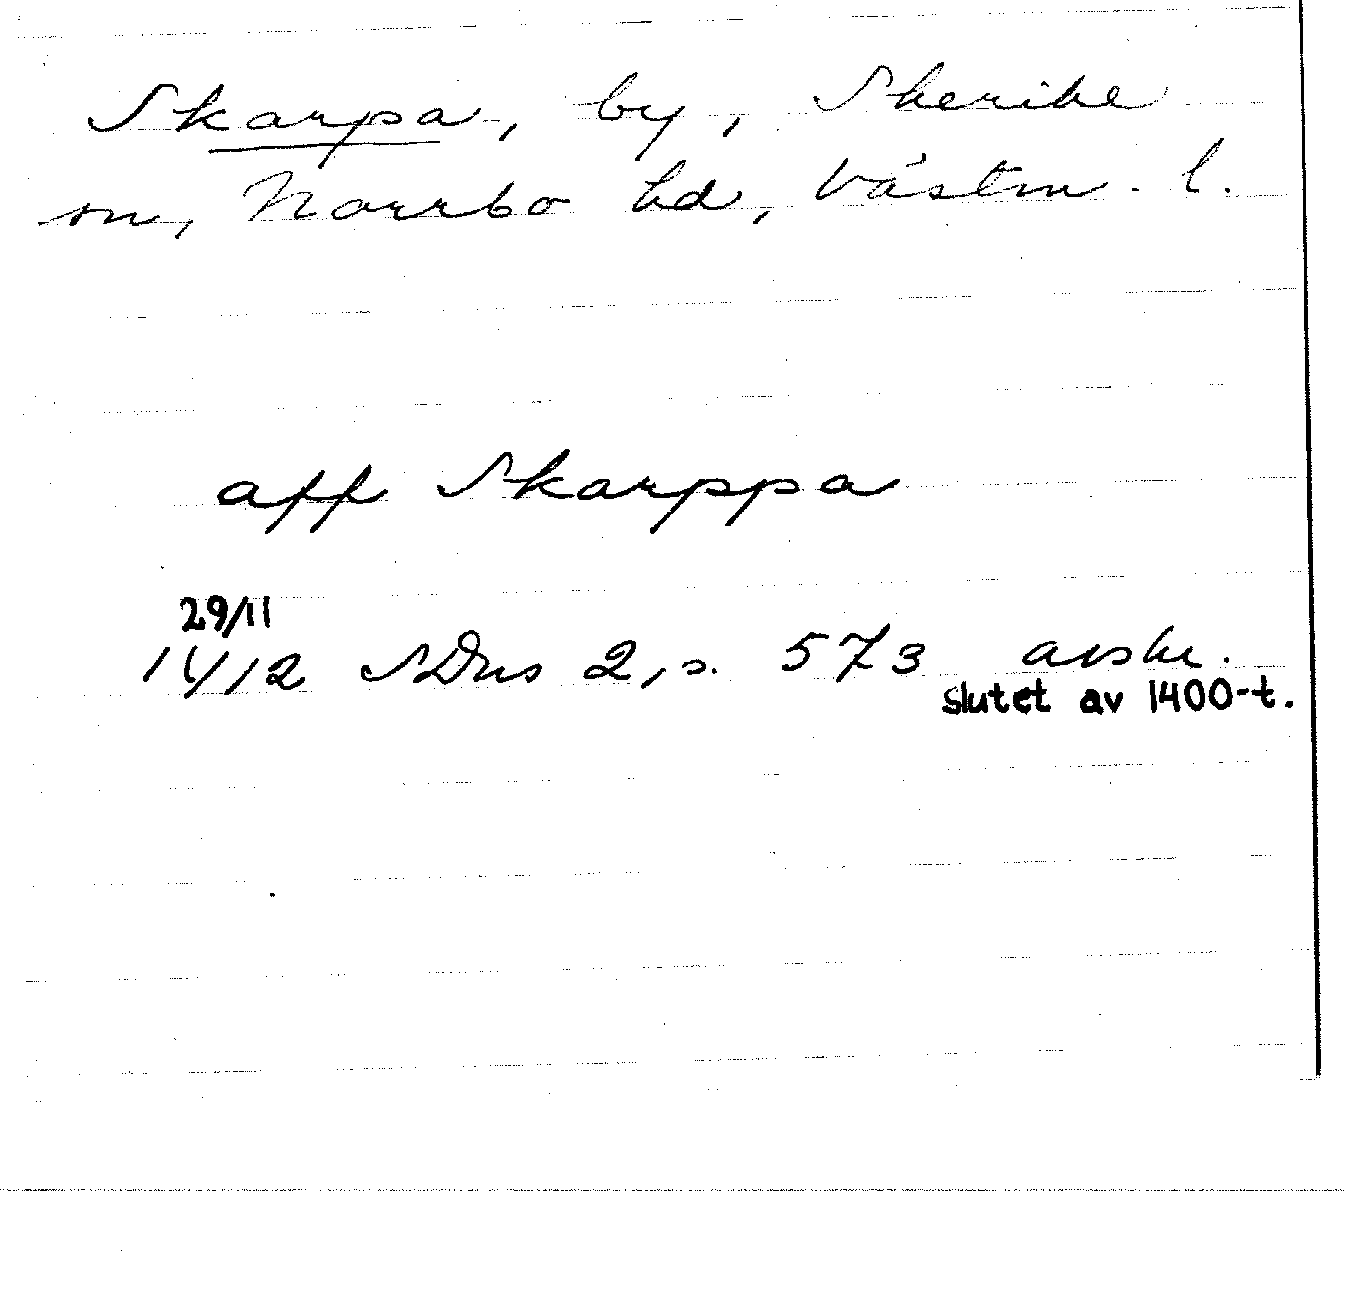 Skarpa, by, Skerike
sn, Norrbo hd, Västm. l.
aff Skarppa
29/11
1412 SDns 2, s. 573 avskr.
slutet av 1400-t.